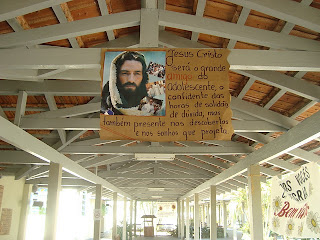 Jesus Cristo
"será o grande
amigo do
adolescente, o
confidente das
horas de solidão
de dúvida, mas
também presente nas descobertas
e nos sonhos que projeta